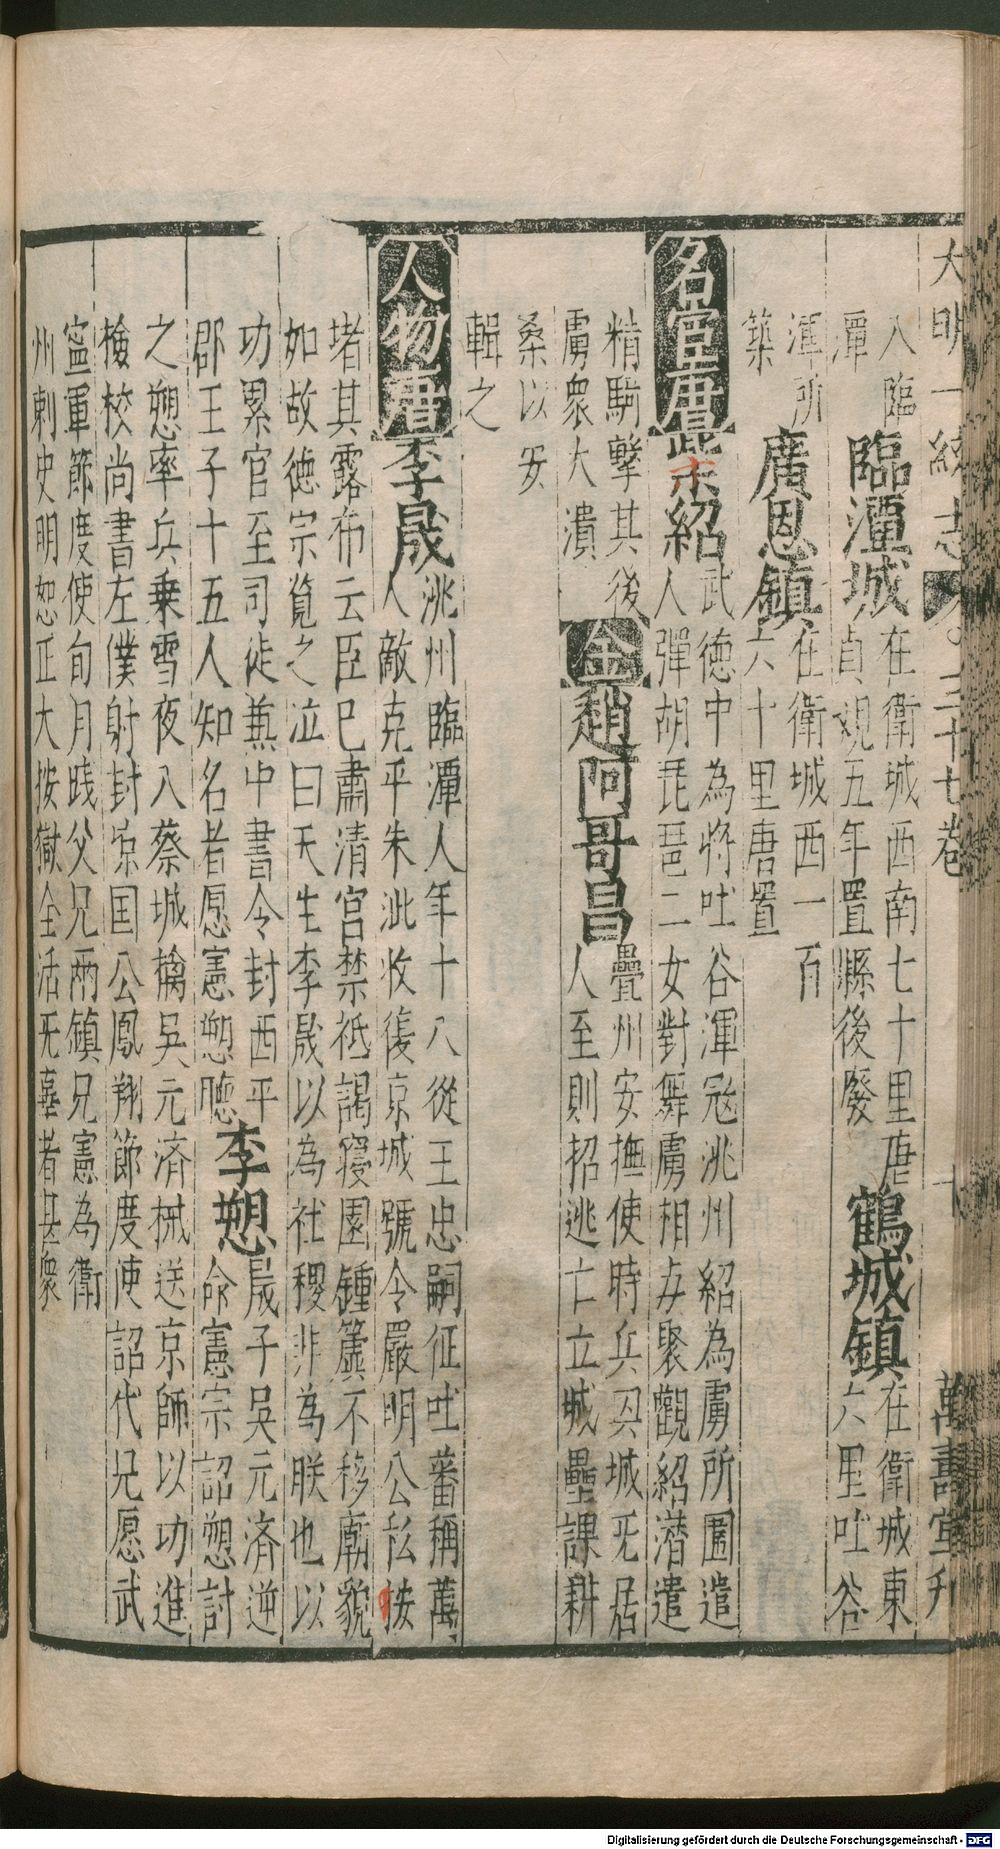 大明一統志 三十七卷 十 萬壽堂刋
入臨潭
臨潭城
在衛城西南七十里唐
貞觀五年置縣後廢
鶴城鎮
在衛城東
六里吐谷
渾所築
廣恩鎮
在衛城西一百
六十里唐置
名宦唐柴紹
武德中為將吐谷渾冦洮州紹為虜所圍遣
人彈胡琵琶二女對舞虜相与聚觀紹潜遣
精騎擊其後
虜衆大潰
金趙阿哥昌
疊州安撫使時兵囚城旡居
人至則招逃亡立城壘課耕
桑以安
輯之
人物唐李晟
洮州臨潭人年十八從王忠嗣征吐蕃稱萬
人敵克平朱泚收復京城號令嚴明公私按
堵其露布云臣已肅清宫禁祗謁寝園鍾簴不移廟貌
如故德宗覧之泣曰天生李晟以為社稷非為朕也以
功累官至司徒兼中書令封西平
郡王子十五人知名者愿憲愬聴
李愬
晟子吳元済逆
命憲宗詔愬討
之愬率兵乗雪夜入蔡城擒吳元済械送京師以功進
檢校尚書左僕射封凉国公鳳翔節度使詔代兄愿武
寍軍節度使旬月踐父兄兩鎮兄憲為衛
州刺史明恕正大按獄全活旡辜者甚衆
Digitalisierung gefördert durch die Deutsche Forschungsgemeinschaft - DFG